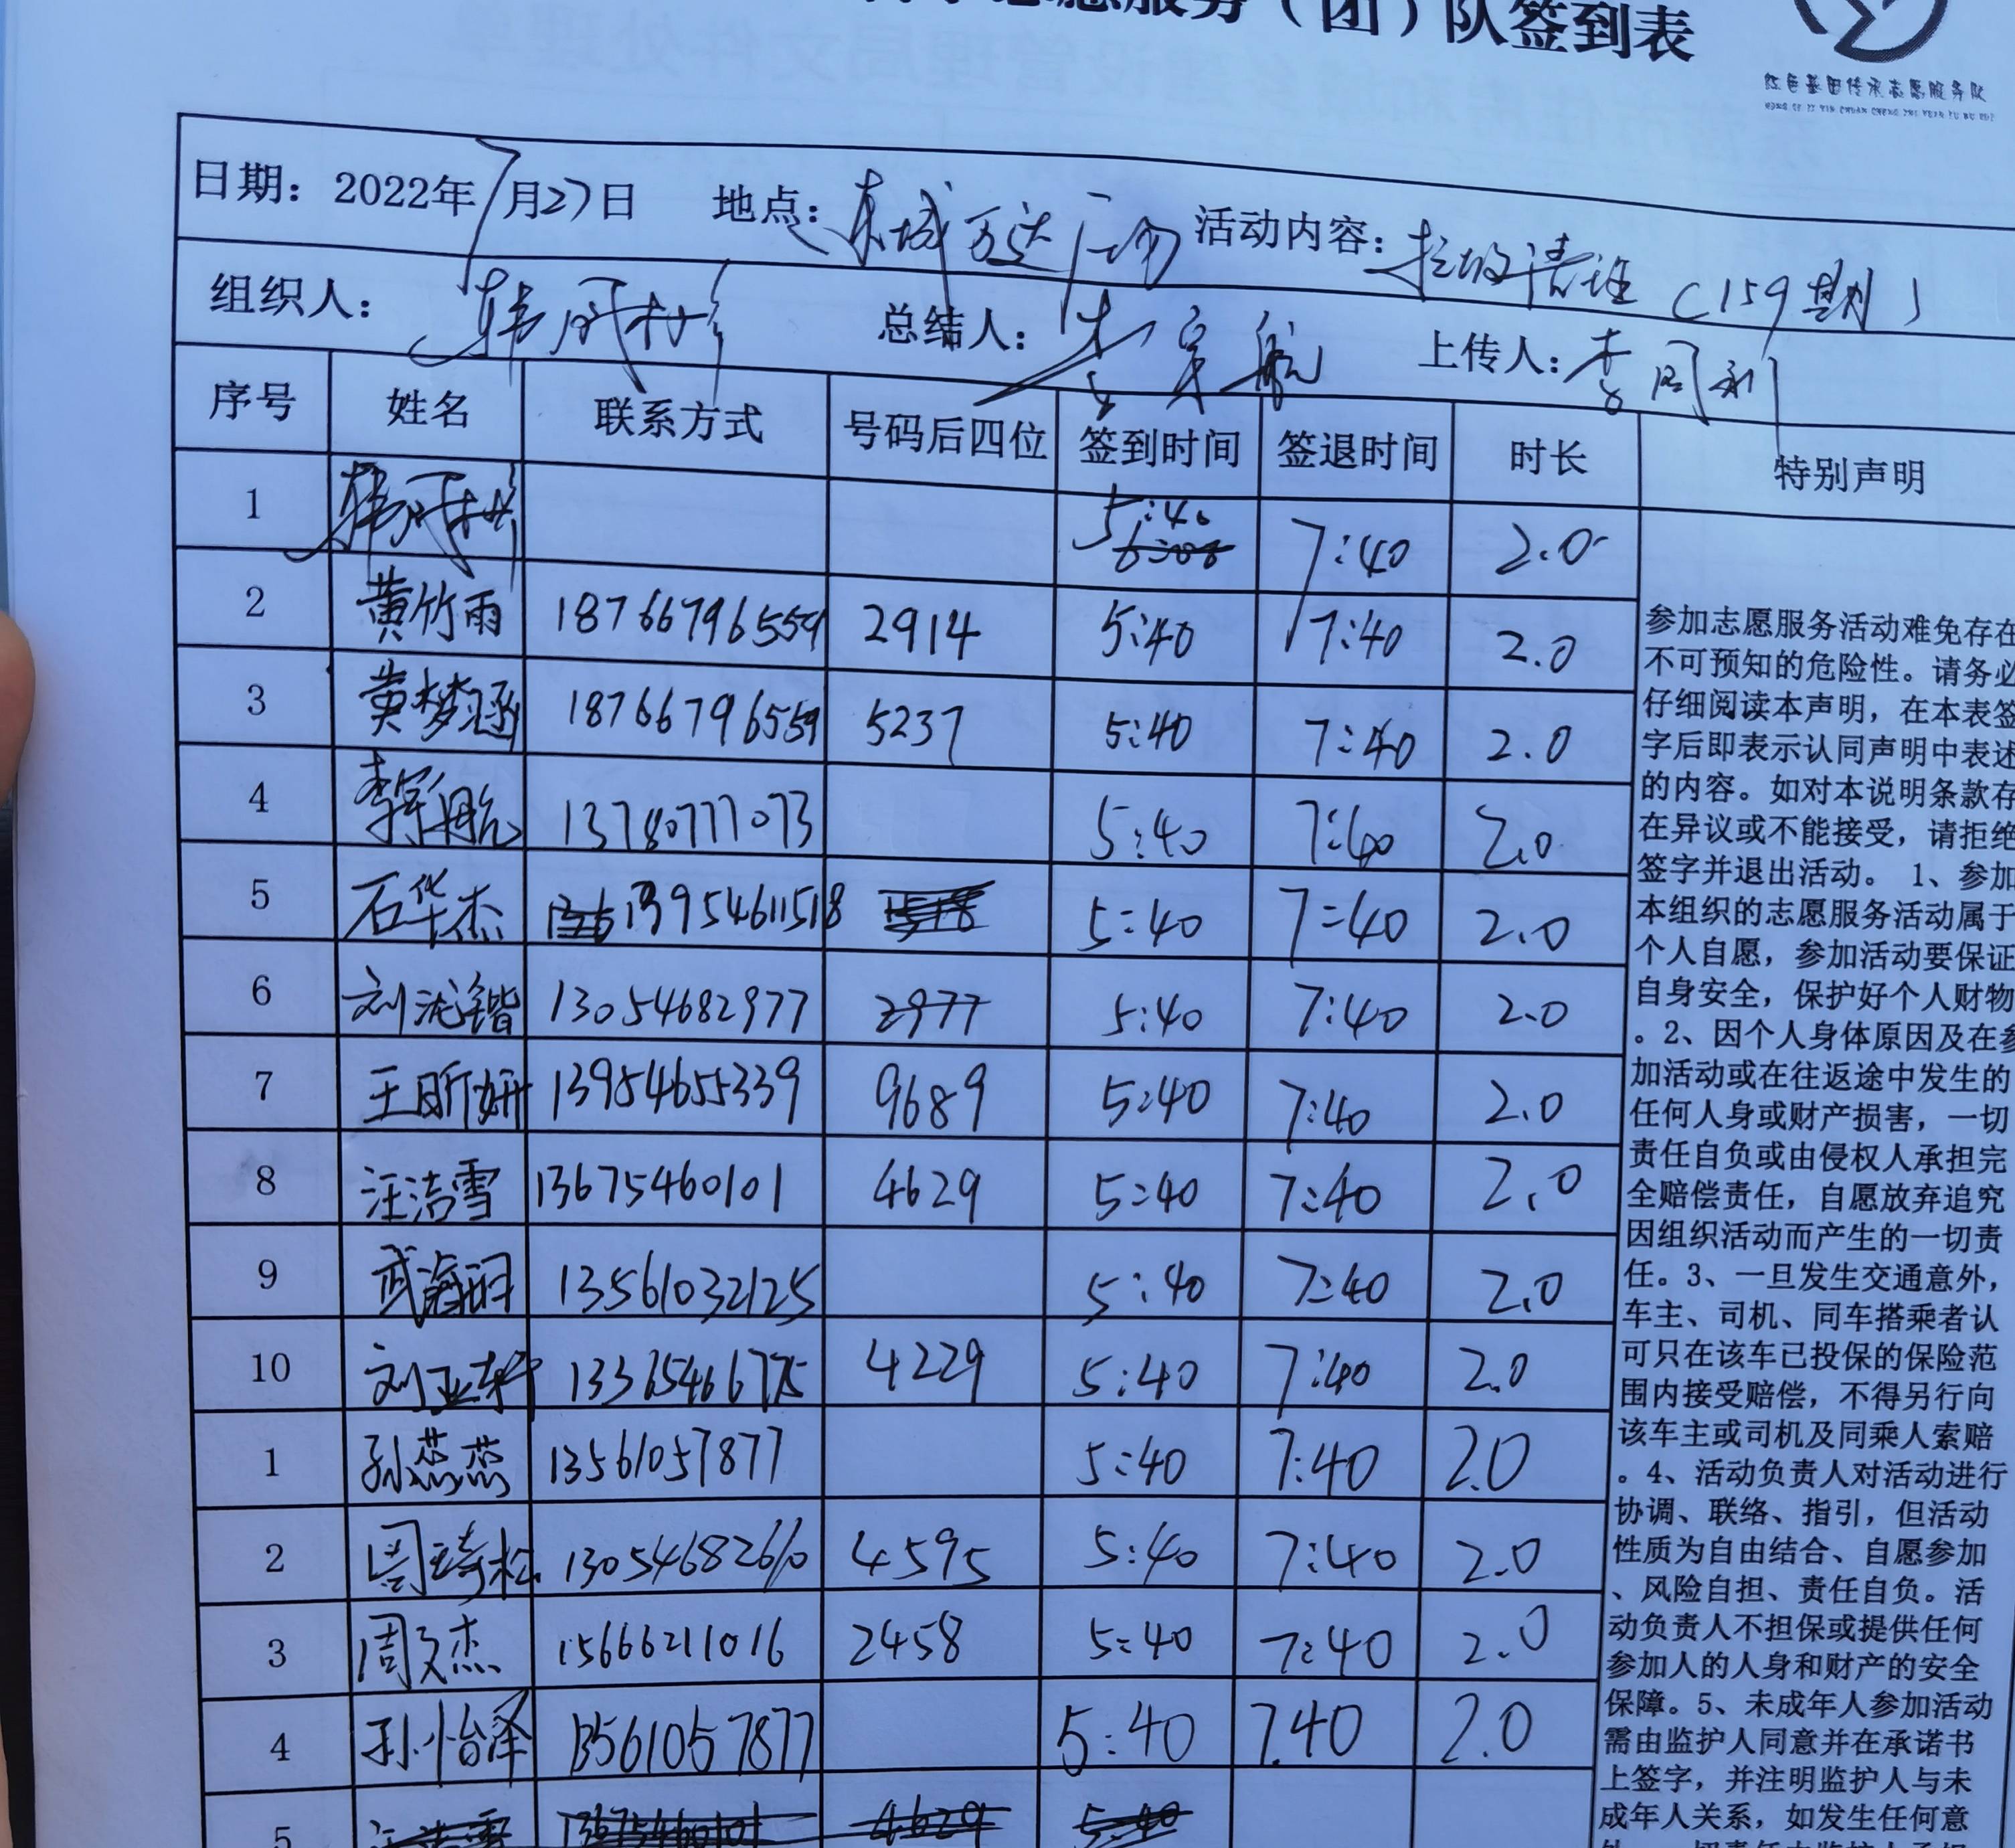 志愿服务(团)队签到表
红色基因传承志愿服务队
日期：2022年7月27日 地点：东城万达广场 活动内容：垃圾清理（159期）
组织人： 总结人：李宗航 上传人：李周利
序号 姓名 联系方式 号码后四位 签到时间 签退时间 时长 特别声明
1 5:40 7:40 2.0
2 黄竹雨 18766796559 2914 5:40 7:40 2.0
3 黄梦涵 18766796559 5237 5:40 7:40 2.0
4 13780777073 5:40 7:40 2.0
5 石华杰 13954611518 5:40 7:40 2.0
6 13054682977 2977 5:40 7:40 2.0
7 王昕妍 13954655339 9689 5:40 7:40 2.0
8 汪洁雪 13675460101 4629 5:40 7:40 2.0
9 武海丽 13561032125 5:40 7:40 2.0
10 刘亚轩 4229 5:40 7:40 2.0
1 孙蕊蕊 13561057877 5:40 7:40 2.0
2 周琦松 13054682610 4595 5:40 7:40 2.0
3 周文杰 15666211016 2458 5:40 7:40 2.0
4 孙怡泽 13561057877 5:40 7.40 2.0
5 汪洁雪 13675460101 4629 5:40
参加志愿服务活动难免存在
不可预知的危险性。请务必
仔细阅读本声明，在本表签
字后即表示认同声明中表述
的内容。如对本说明条款存
在异议或不能接受，请拒绝
签字并退出活动。 1、参加
本组织的志愿服务活动属于
个人自愿，参加活动要保证
自身安全，保护好个人财物
。2、因个人身体原因及在参
加活动或在往返途中发生的
任何人身或财产损害，一切
责任自负或由侵权人承担完
全赔偿责任，自愿放弃追究
因组织活动而产生的一切责
任。3、一旦发生交通意外，
车主、司机、同车搭乘者认
可只在该车已投保的保险范
围内接受赔偿，不得另行向
该车主或司机及同乘人索赔
。4、活动负责人对活动进行
协调、联络、指引，但活动
性质为自由结合、自愿参加
、风险自担、责任自负。活
动负责人不担保或提供任何
参加人的人身和财产的安全
保障。5、未成年人参加活动
需由监护人同意并在承诺书
上签字，并注明监护人与未
成年人关系，如发生任何意